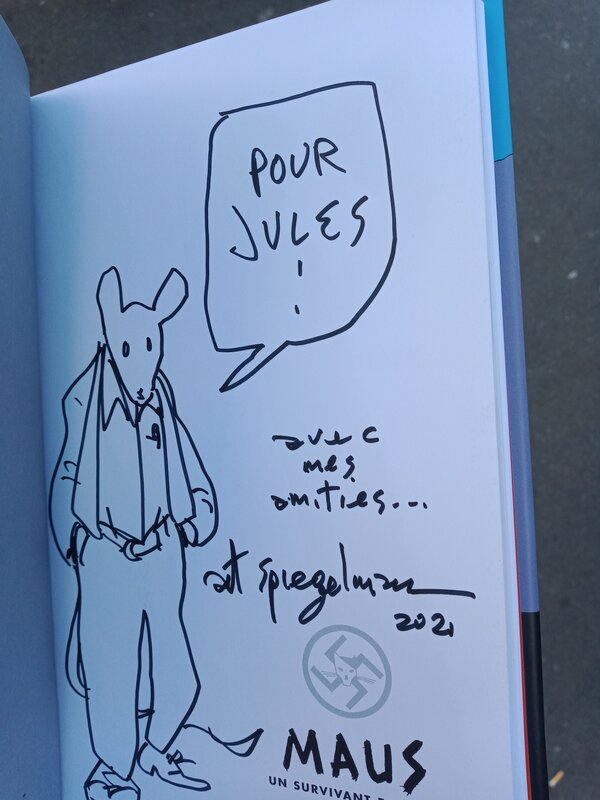 POUR
JULES
!
avec
mes
amitiés...
art spiegelman
2021
MAUS
UN SURVIVANT